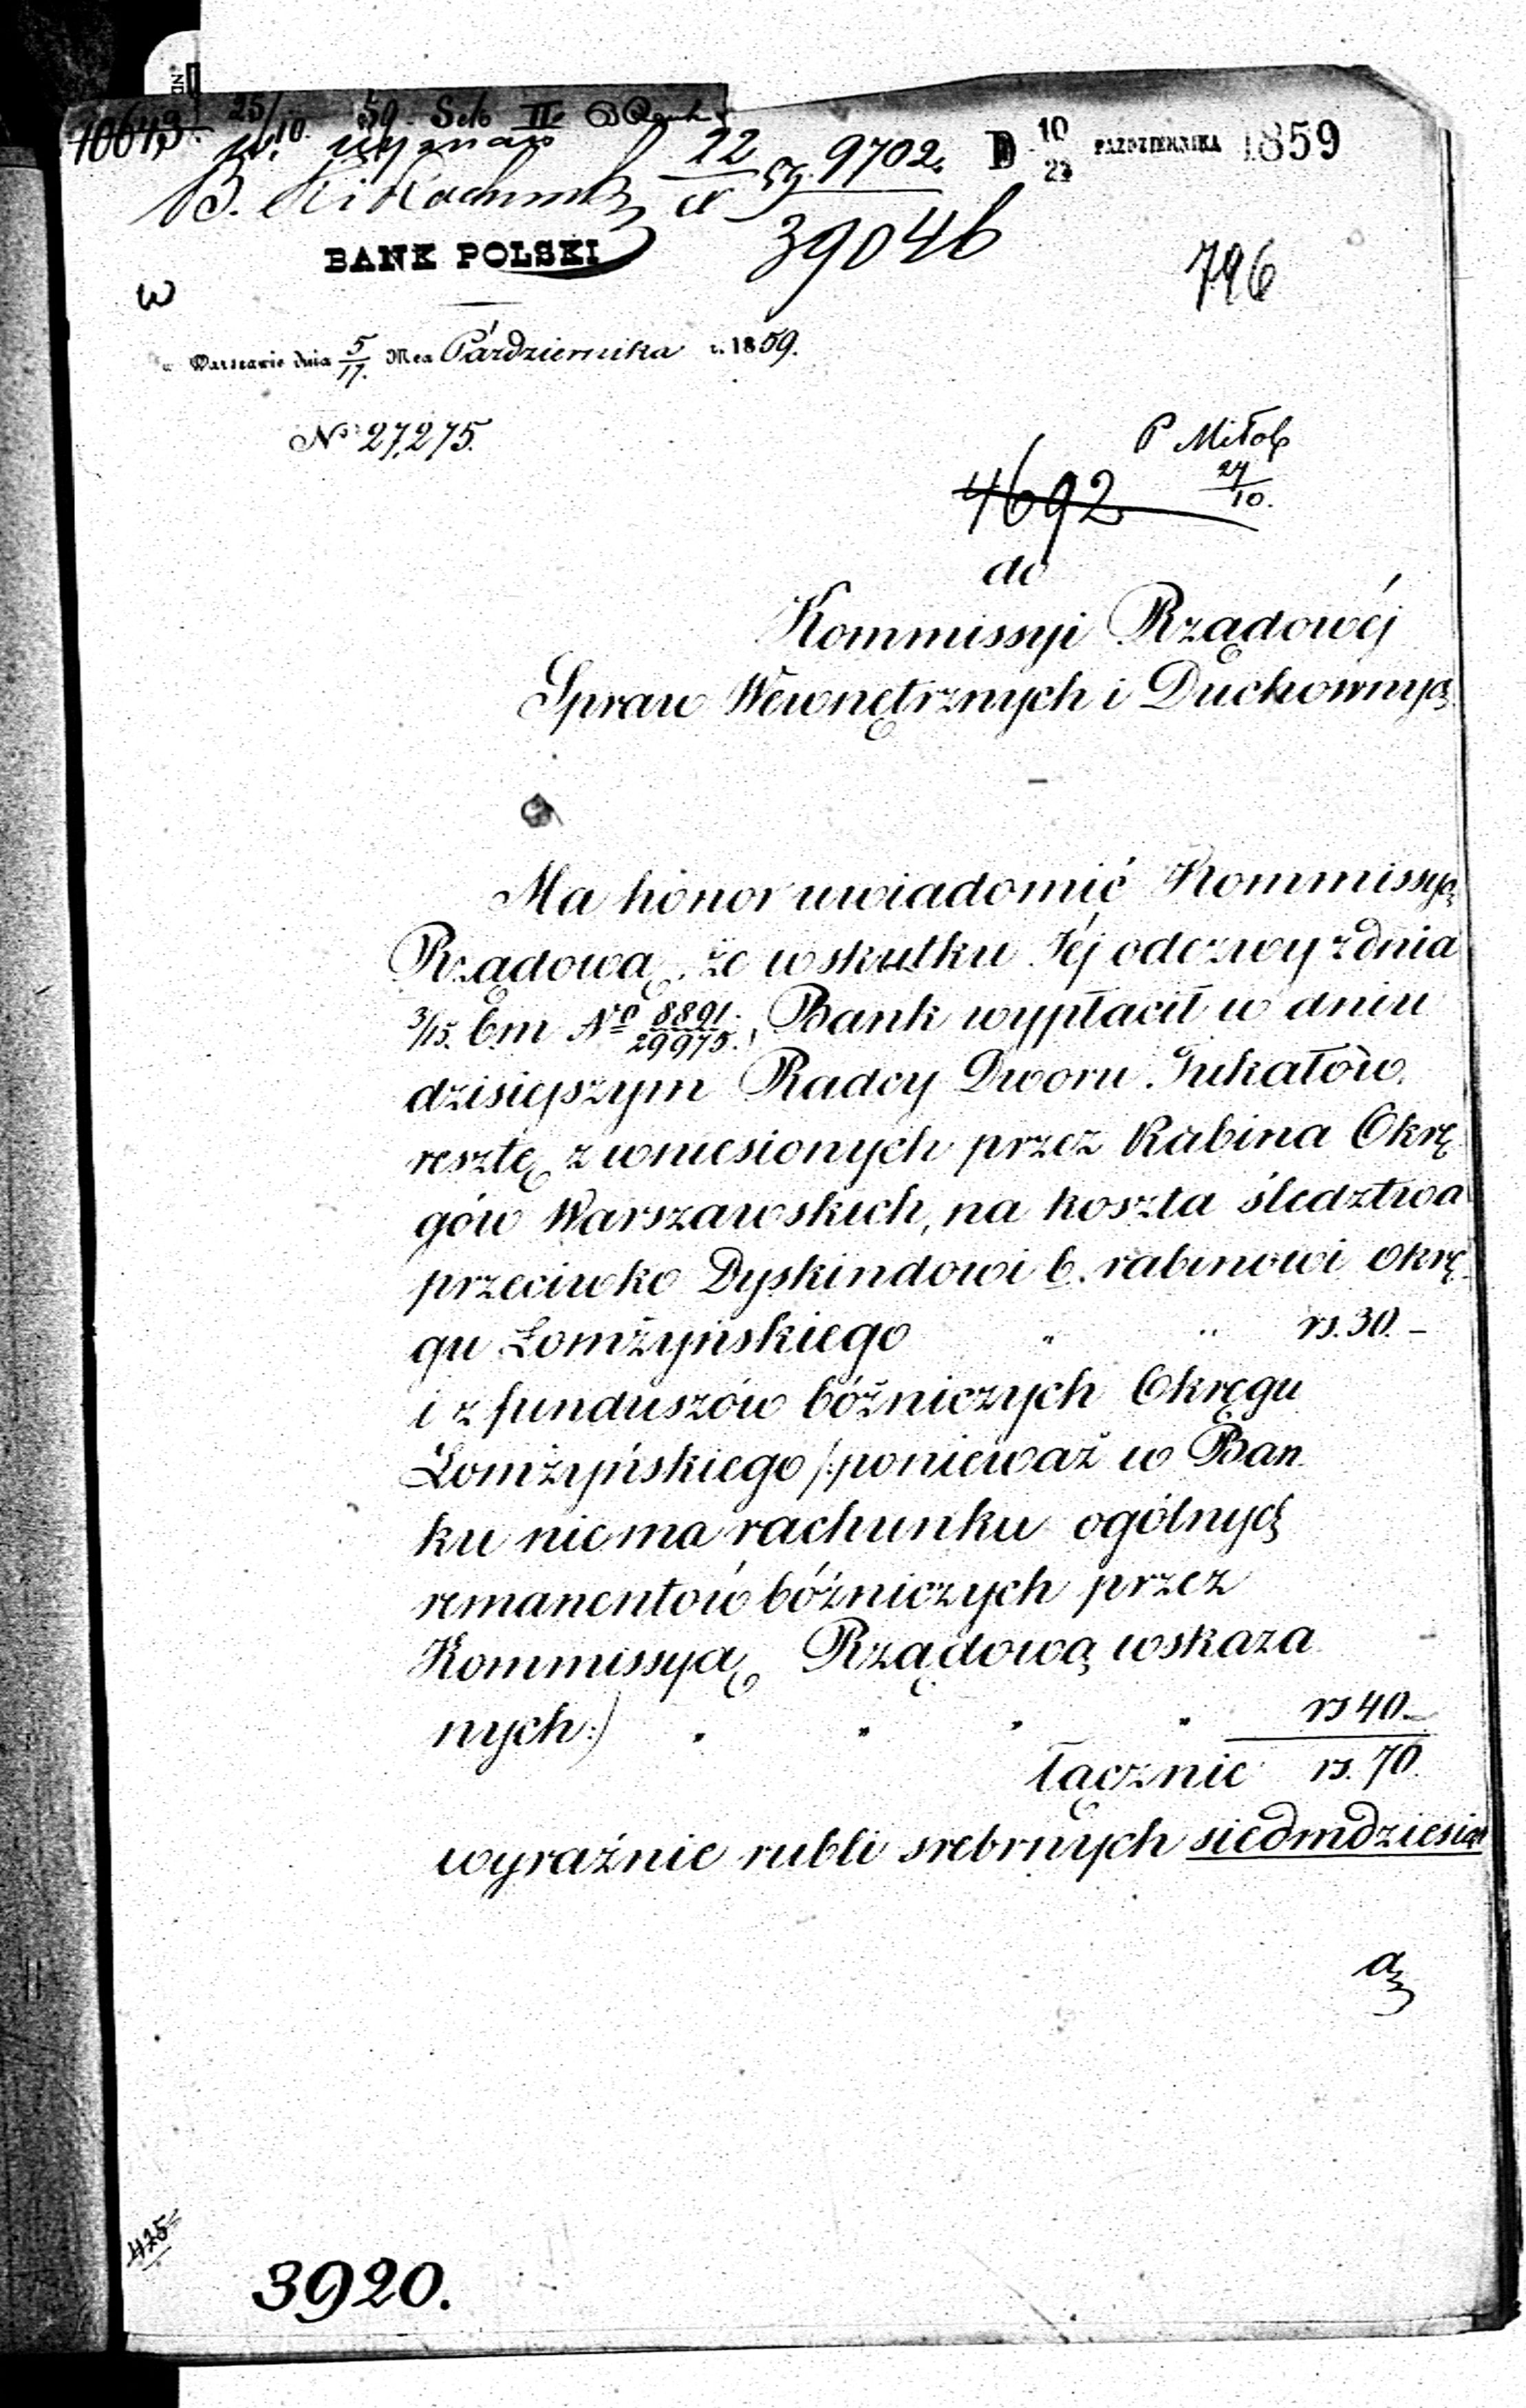 10643 25/10 59 Sek II
22/X 59. 9702. D 10/22 PAŹDZIERNIKA 1859
39046
BANK POLSKI
796
w Warszawie dnia 5/17. Mca Października r. 1859.
No 27,275.
P Miłob
24/10.
4692
do
Kommissyi Rządowéj
Spraw Wewnętrznych i Duchownych
Ma honor uwiadomić Kommissyą
Rządową, że w skutku Jéj odezwy z dnia
3/15. b.m No 8891./29975., Bank wypłacił w dniu
dzisiejszym Radcy Dworu Tukałło w.
resztę z wniesionych przez Rabina Okrę-
gów Warszawskich, na koszta śledztwa
przeciwko Dyskindowi b. rabinowi okrę-
gu Łomżyńskiego " " rs. 30. –
i z funduszów bóźniczych Okręgu
Łomżyńskiego /: ponieważ w Ban
ku niema rachunku ogólnych
remanentów bóźniczych przez
Kommissyą Rządową wskaza
nych :/ " " " " rs 40. –
łącznie rs. 70.
wyraźnie rubli srebrnych siedmdziesiąt
425
3920.